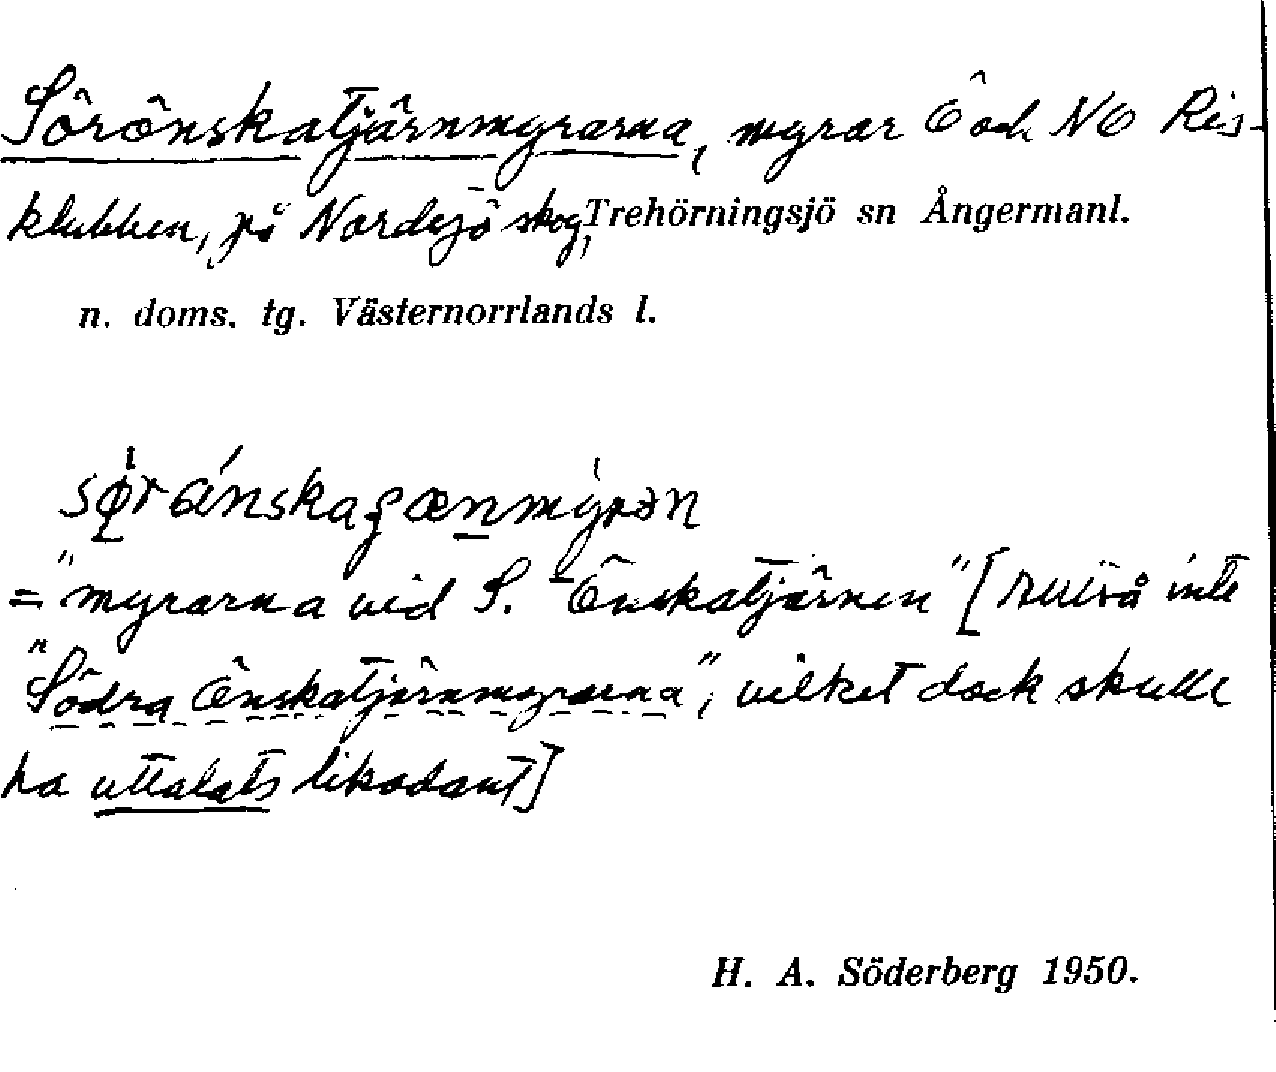 Sörönskatjärnmyrarna, myrar Ö och NÖ Ris-
klubben, på Nordsjö skog, Trehörningsjö sn Ångermanl.
n. doms. tg. Västernorrlands l.
="myrarna vid S. Önskatjärnen" [ inte
"Södra Önskatjärnmyrarna", vilket dock skulle
ha uttalats likadant]
H. A. Söderberg 1950.